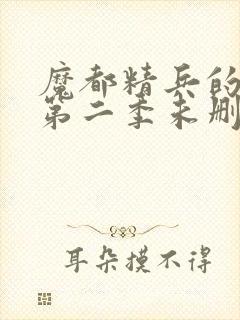 魔都精兵的
第二季未删
耳朵摸不得